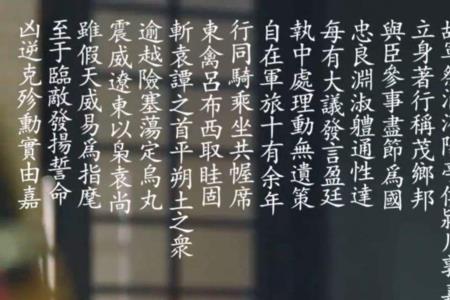 立身著行稱茂鄉邦
與臣參事盡節爲國
忠良淵淑軆通性達
每有大議發言盈廷
執中處理動無遺策
自在軍旅十有余年
行同騎乘坐共幄席
東禽呂布西取眭固
斬袁譚之首平朔土之衆
逾越險塞蕩定烏丸
震威遼東以梟袁尚
雖假天威易爲指麾
至于臨敵發揚誓命
凶逆克殄勳實由嘉